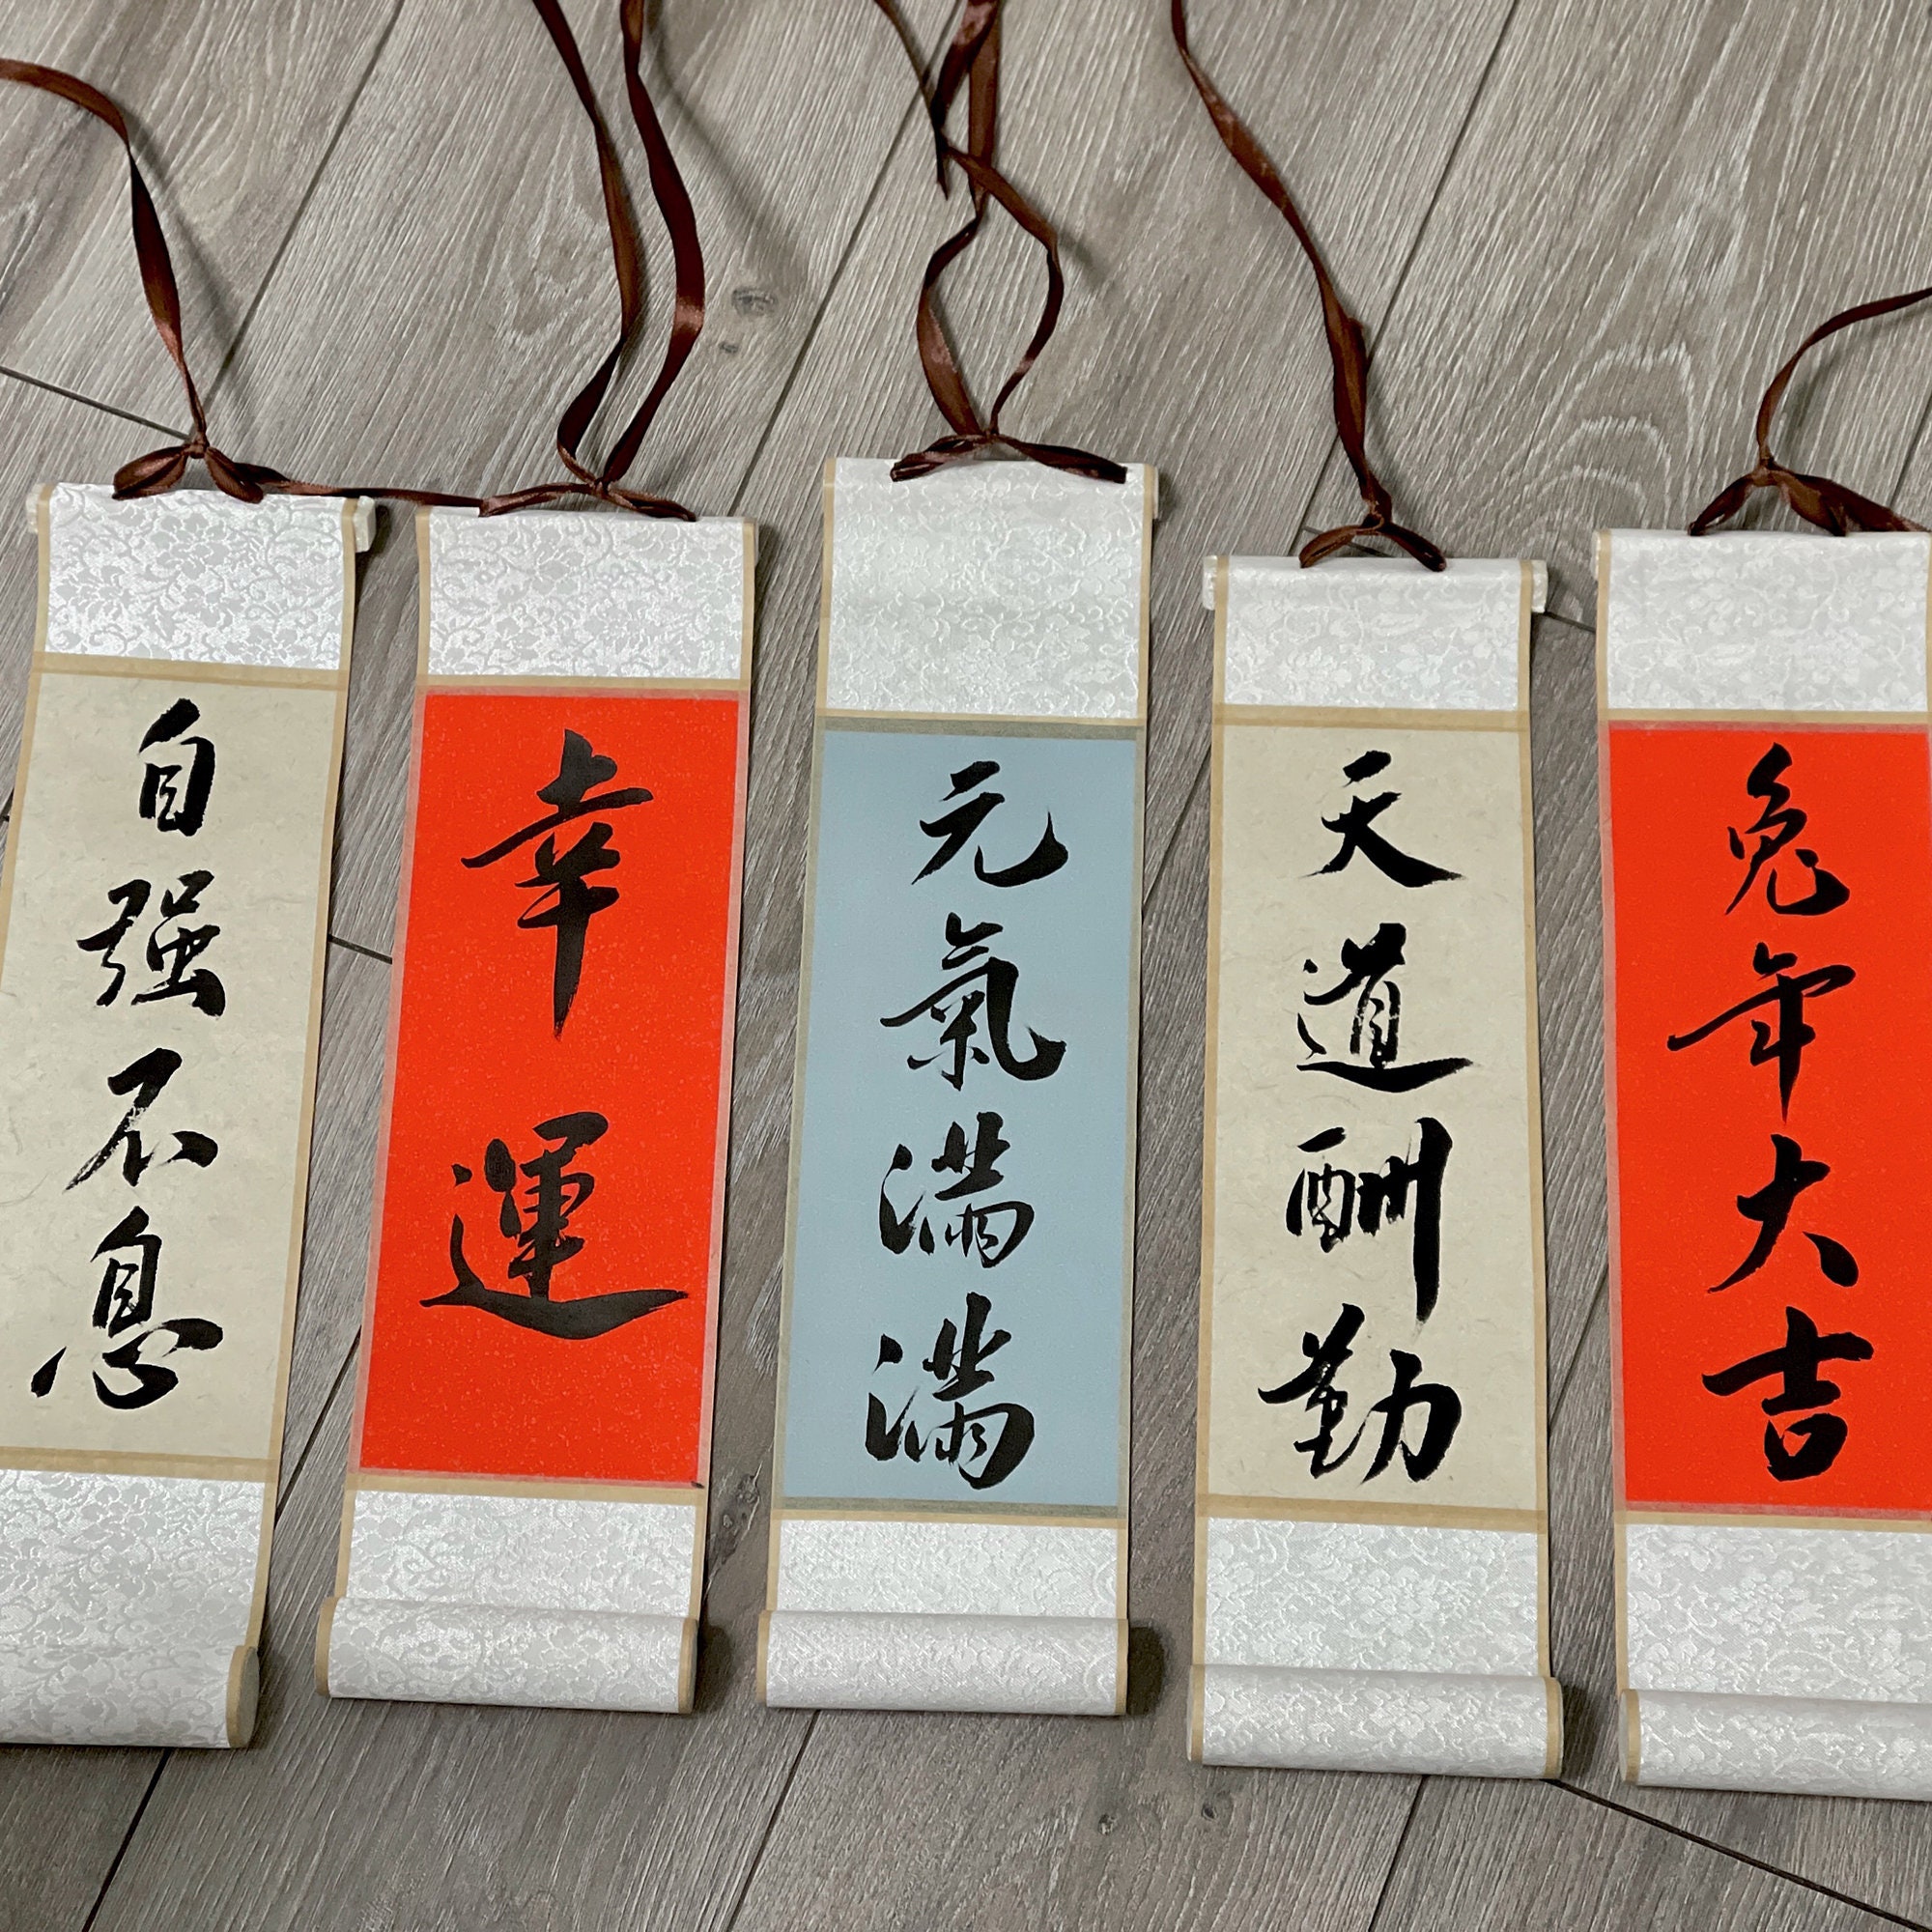 自强不息
幸運
元氣滿滿
天道酬勤
兔年大吉